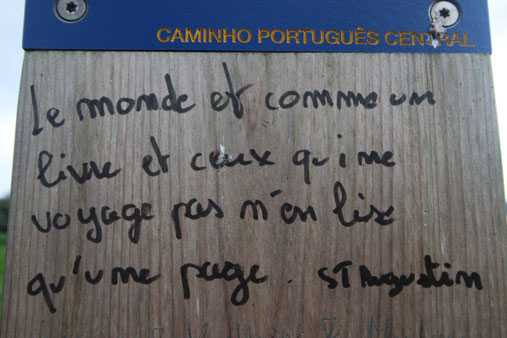 CAMINHO PORTUGUÊS CENTRAL
Le monde et comme un
livre et ceux qui ne
voyage pas n'en lise
qu'une page. ST Augustin